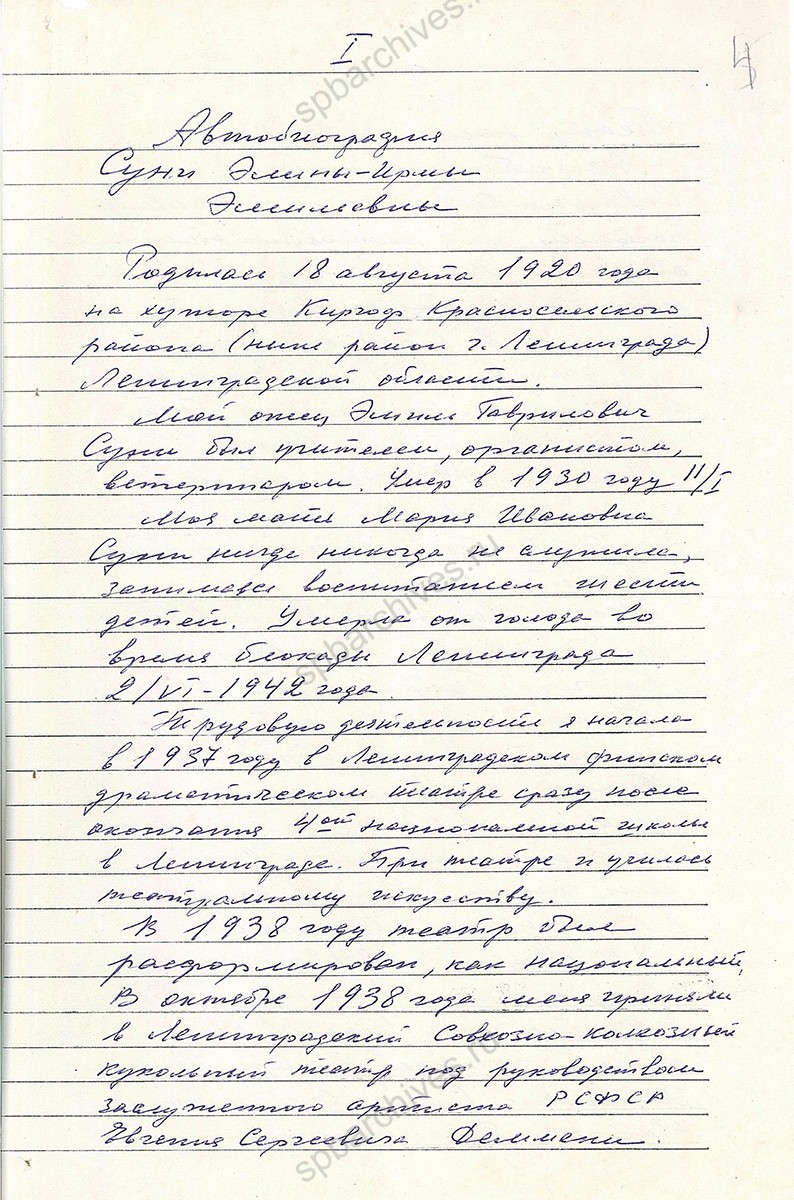 I
4
Автобиография
Суни Элины-Ирмы
Эмилевны
Родилась 18 августа 1920 года
на хуторе Киргоф Красносельского
района (ныне район г. Ленинграда)
Ленинградской области.
Мой отец Эмиль Гаврилович
Суни был учителем, органистом,
ветеринаром. Умер в 1930 году 11/I
Моя мать Мария Ивановна
Суни нигде никогда не служила,
занимаясь воспитанием шести
детей. Умерла от голода во
время блокады Ленинграда
2/VI-1942 года.
Трудовую деятельность я начала
в 1937 году в Ленинградском финском
драматическом театре сразу после
окончания 4ой национальной школы
в Ленинграде. При театре и училась
театральному искусству.
В 1938 году театр был
расформирован, как национальный.
В октябре 1938 года меня приняли
в Ленинградский Совхозно-колхозный
кукольный театр под руководством
заслуженного артиста РСФСР
Евгения Сергеевича Деммени.
spbarchives.ru
spbarchives.ru
spbarchives.ru